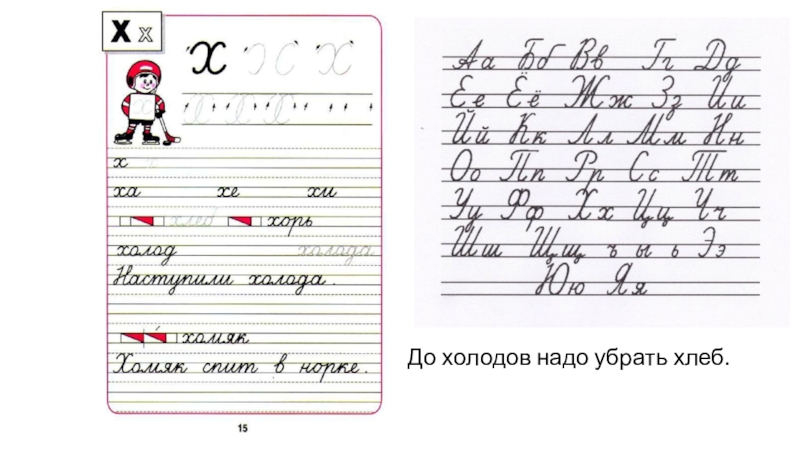 Х х
Х Х
Х Х Х
х х
ха хе хи
хлеб хорь
холод холода
Наступили холода.
хомяк
Хомяк спит в норке.
15
Аа Бб Вв Гг Дд
Ее Ёё Жж Зз Ии
Йй Кк Лл Мм Нн
Оо Пп Рр Сс Тт
Уу Фф Хх Цц Чч
Шш Щщ ъ ы ь Ээ
Юю Яя
До холодов надо убрать хлеб.